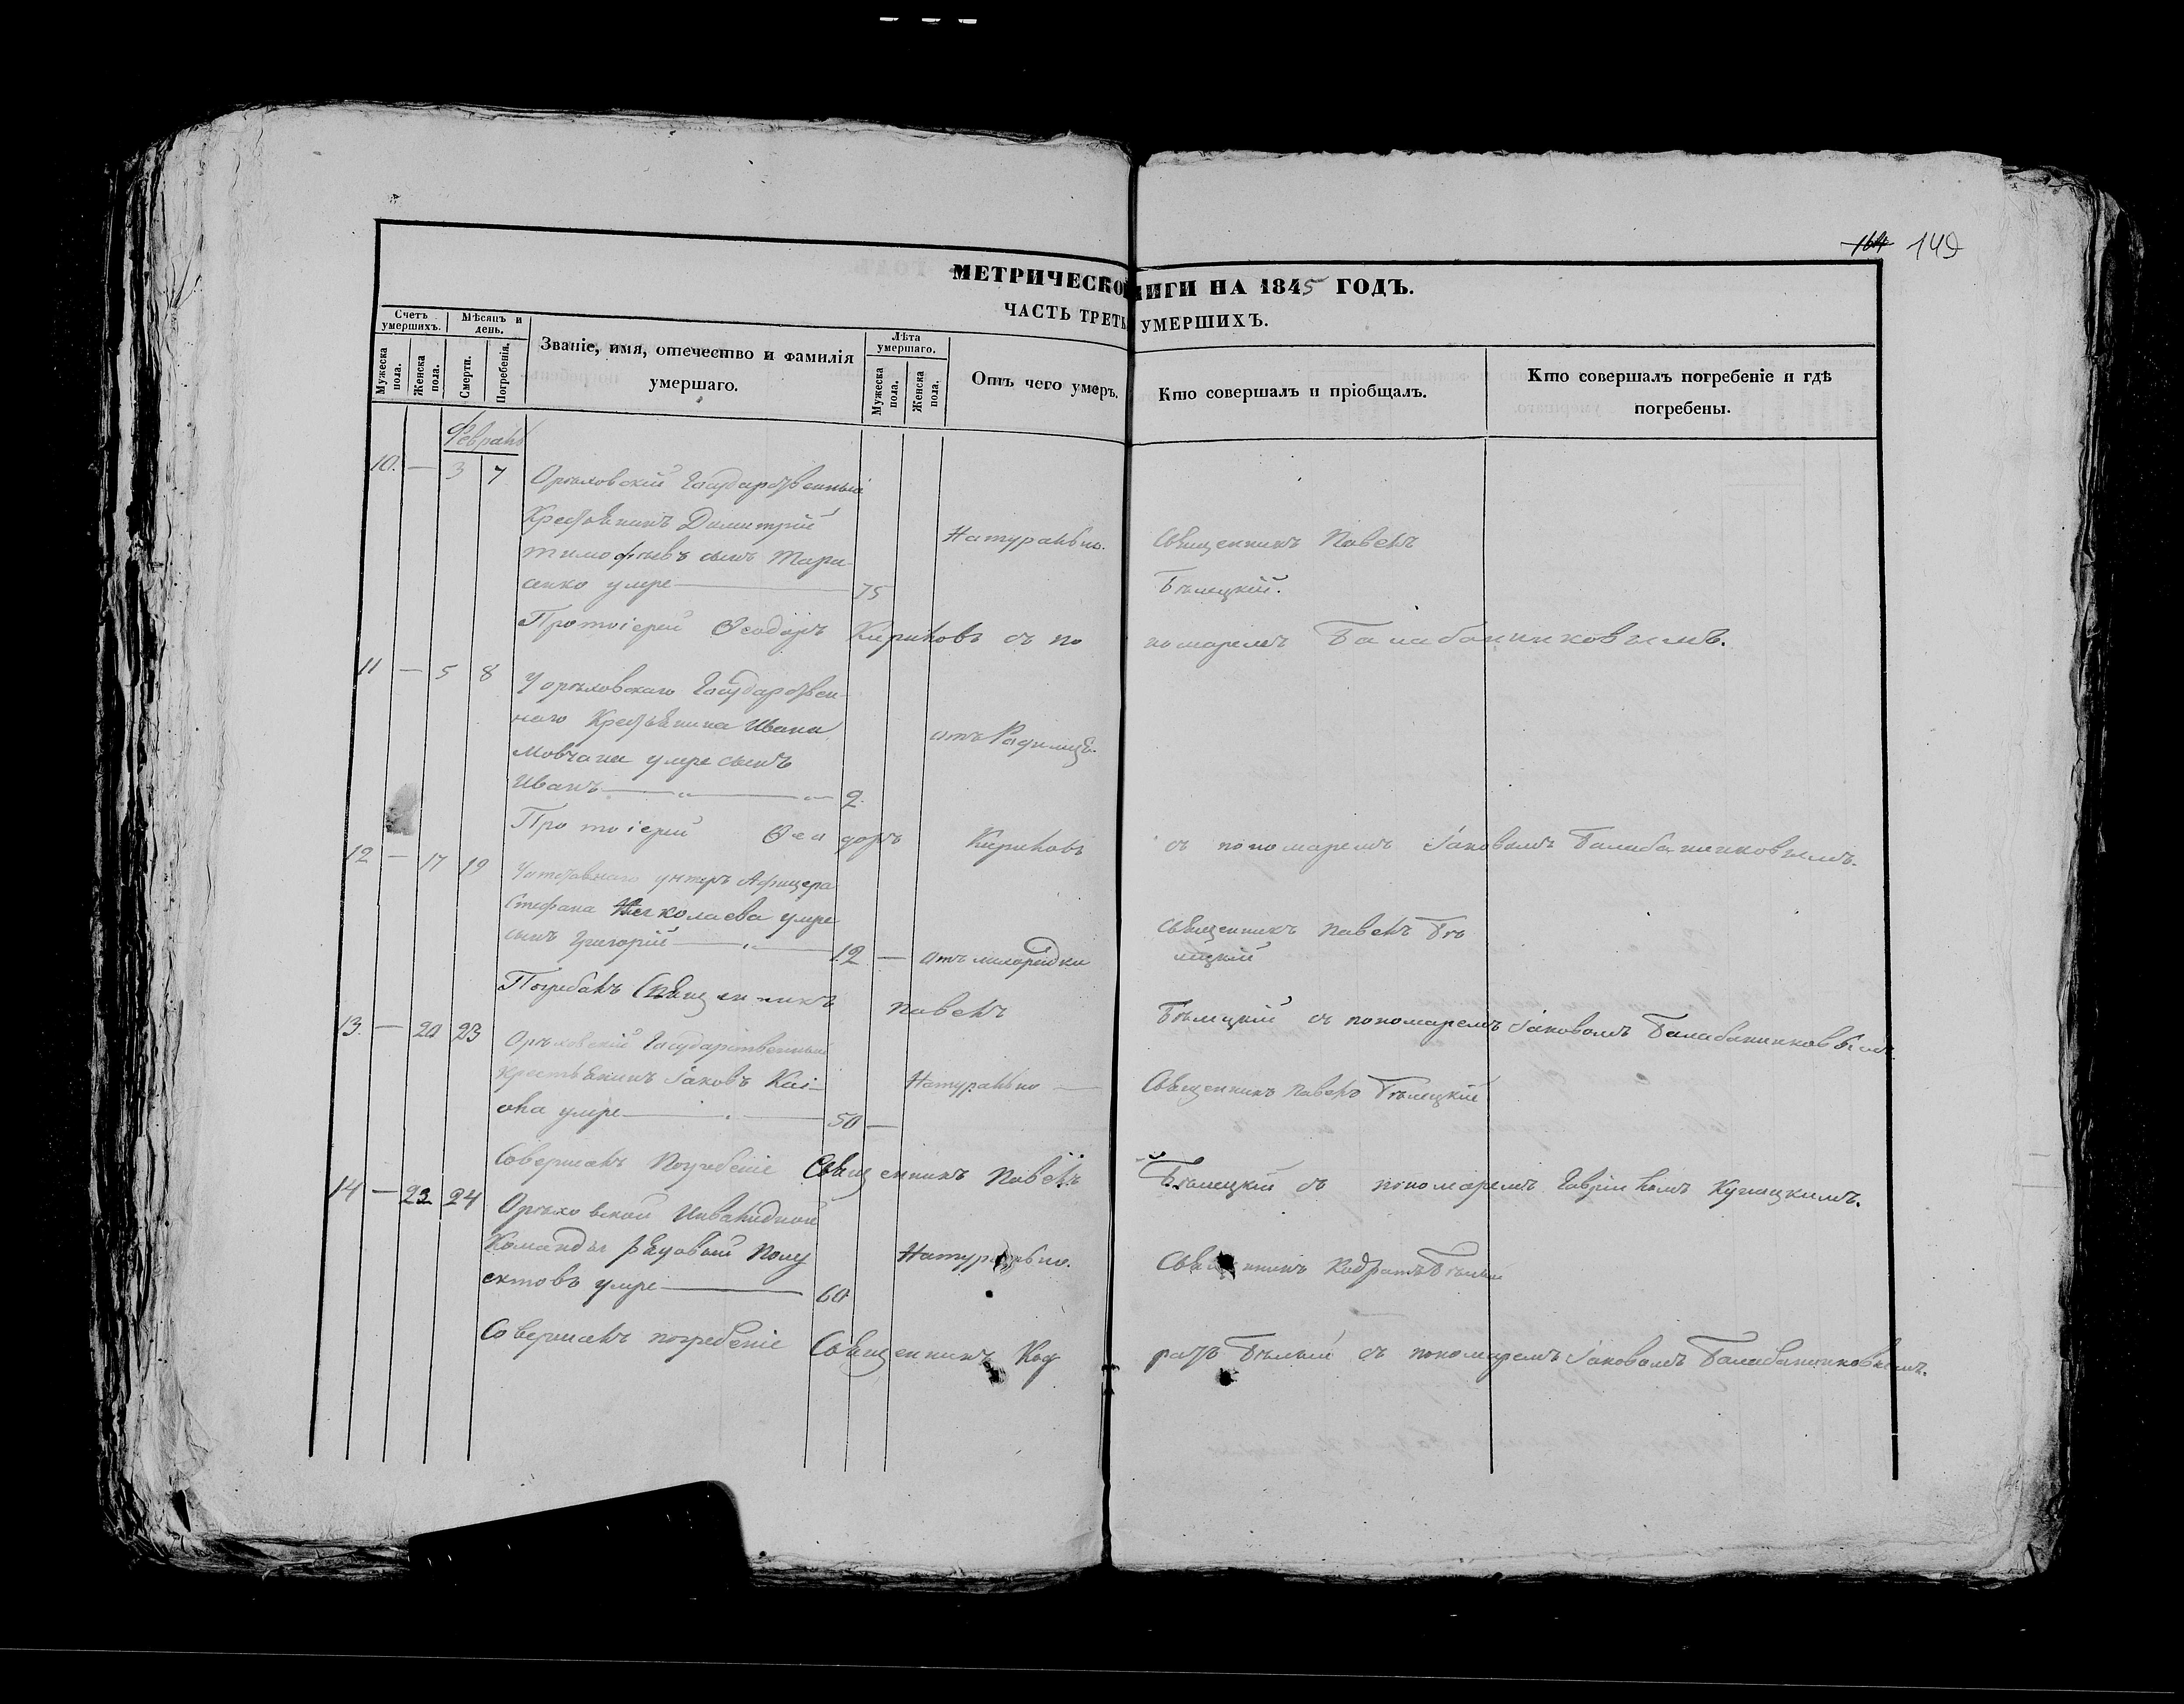 164 149
МЕТРИЧЕСКО ИГИ НА 1845 ГОДЪ.
ЧАСТЬ ТРЕТЬ УМЕРШИХЪ.
Счетъ умершихъ.
Мѣсяцъ и день.
Званіе, имя, отечество и фамилія умершаго.
Лѣта умершаго.
Отъ чего умеръ.
Кто совершалъ и пріобщалъ.
Кто совершалъ погребеніе и гдѣ погребены.
Мужеска пола.
Женска пола.
Смерти.
Погребенія.
Мужеска пола.
Женска пола.
Февраль
10. — 3 7 Орѣховскій Государственный
Крестьянинъ Димитрій
тимофѣевъ сынъ Тара
сенко умре — 75
Натурально.
Священникъ Павелъ
Бѣлецкій.
Протоіерей Ѳеодоръ Кириловъ съ по номаремъ Балабанниковымъ.
11 — 5 8 У орѣховскаго Государствен
наго Крестьянина Ивана
Мовчана умре сынъ
Иванъ — 2.
отъ Родимца.
Протоіерей Ѳеодоръ Кириловъ съ пономаремъ Іаковомъ Балабанниковымъ.
12 — 17 19 унтеръ Афицера
Стефана Николаева умре
сынъ Григорій — 12 —
отъ лихорадки
священникъ павелъ Бѣ
лецкій
Погребалъ Священникъ павелъ Бѣлецкій съ пономаремъ Іаковомъ Балабанниковымъ.
13. — 20 23 Орѣховскій Государственный
крестьянинъ Іаковъ
умре — 50 —
Натурально —
Священникъ павелъ Бѣлецкій
Совершалъ Погребеніе Священникъ Павелъ Бѣлецкій съ пономаремъ Гавріиломъ
14 — 22 24 Орѣховской Инвалидной
Команды рядовый Полу
ектовъ умре — 60
Натурально.
Священникъ Кодратъ Бѣлый
Совершалъ погребеніе Священникъ Код ратъ Бѣлый съ пономаремъ Іаковомъ Балабанниковымъ.